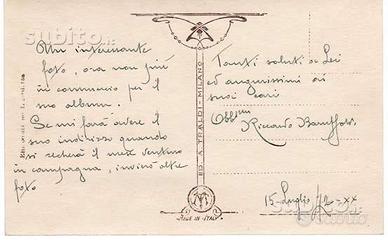 subito.it
Un interessante
foto, ora non più
in commercio per il
suo album.
Se mi farà avere il
suo indirizzo quando
si recherà il mese venturo
in campagna, invierò altre
foto
ED. A. TRALDI - MILANO
MADE IN ITALY
Tanti saluti a Lei
ed augurissimi ai
suoi cari
Obb.mo
Riccardo
15 Luglio /42 - XX
subito.it